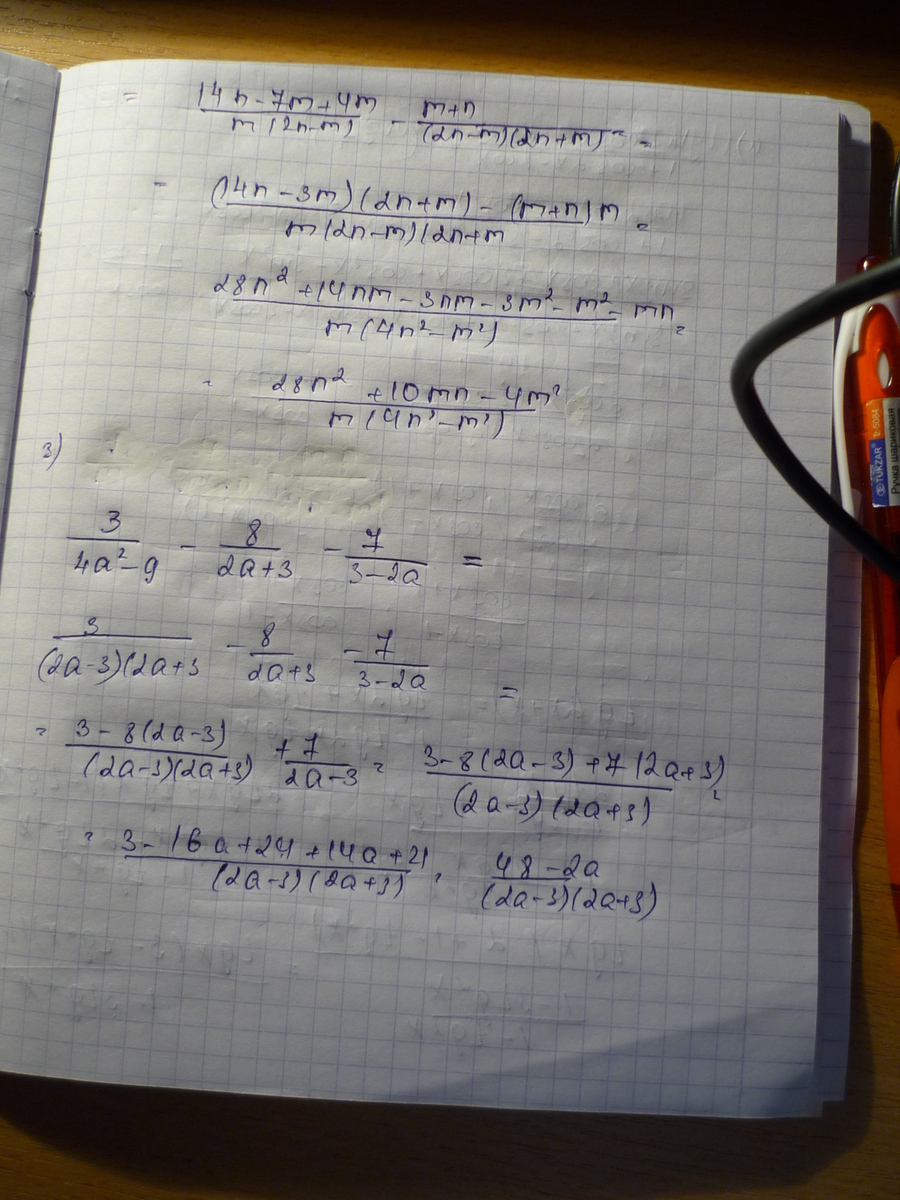 = (14n-7m+4m)/(m(2n-m)) - (m+n)/((2n-m)(2n+m)) =
= ((14n-3m)(2n+m)-(m+n)m)/(m(2n-m)(2n+m =
(28n²+14nm-3nm-3m²-m²-mn)/(m(4n²-m²)) =
= (28n²+10mn-4m²)/(m(4n²-m²))
3)
3/(4a²-9) - 8/(2a+3) - 7/(3-2a) =
3/((2a-3)(2a+3 - 8/(2a+3) - 7/(3-2a) =
= (3-8(2a-3))/((2a-3)(2a+3)) + 7/(2a-3) = (3-8(2a-3)+7(2a+3))/((2a-3)(2a+3)) =
= (3-16a+24+14a+21)/((2a-3)(2a+3)) = (48-2a)/((2a-3)(2a+3))
TUKZAR
Tz 5084
Ручка шариковая